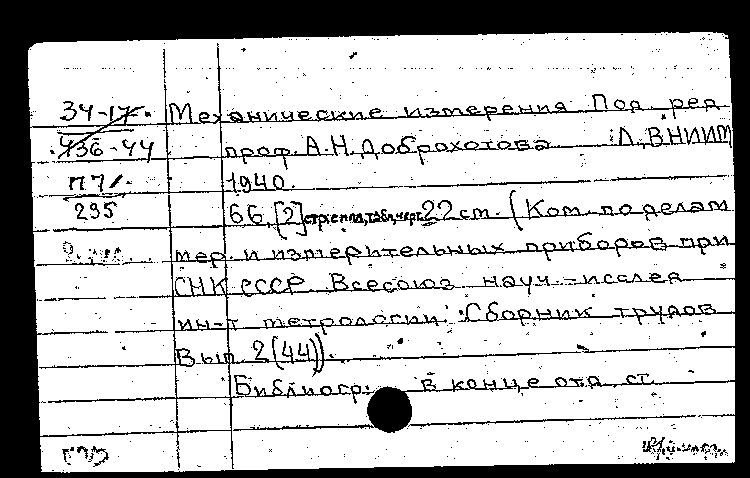 34-17. Механические измерения Под ред
436-44 проф. А.Н.Доброхотова Л,ВНИИМ
П71 1940.
295 66,[2]стр.с илл,табл,черт.22 см. (Ком. по делам
мер. и измерительных приборов при
СНК СССР. Всесоюз науч.-исслед
ин-т метрологии. Сборник трудов
Вып 2(44)).
Библиогр. в конце отд. ст.